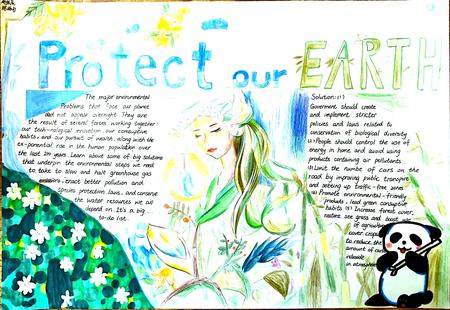 Protect our EARTH
The major environmental
Problems that face our planet
did not appear overnight. They are
the result of several forces working together:
our tech-nological innovation our consumptive
habits. and our pursuit of wealth. along with the
ex-ponential rise in the human population over
the last 200 years. Learn about some of big solutions
that underpin the environmental steps we need
to take to slow and halt greenhouse gas
enact better pollution and
species protection laws. and conserve
the water resources we all
depend on. It's a big
to-do list.
Solution: (1)
Government should create
and implement stricter
policies and laws related to
conservation of biological diversity
(2) People should control the use of
energy in home and avoid using
products containing air pollutants
(3) Limit the number of cars on the
road by improving public transport
and setting up traffic-free zones
(4) Promote environmental-friendly
products, lead green consumptive
habits. (5) Increase forest cover,
restore
of
cover
to reduce the
amount of
release
in atmosphere